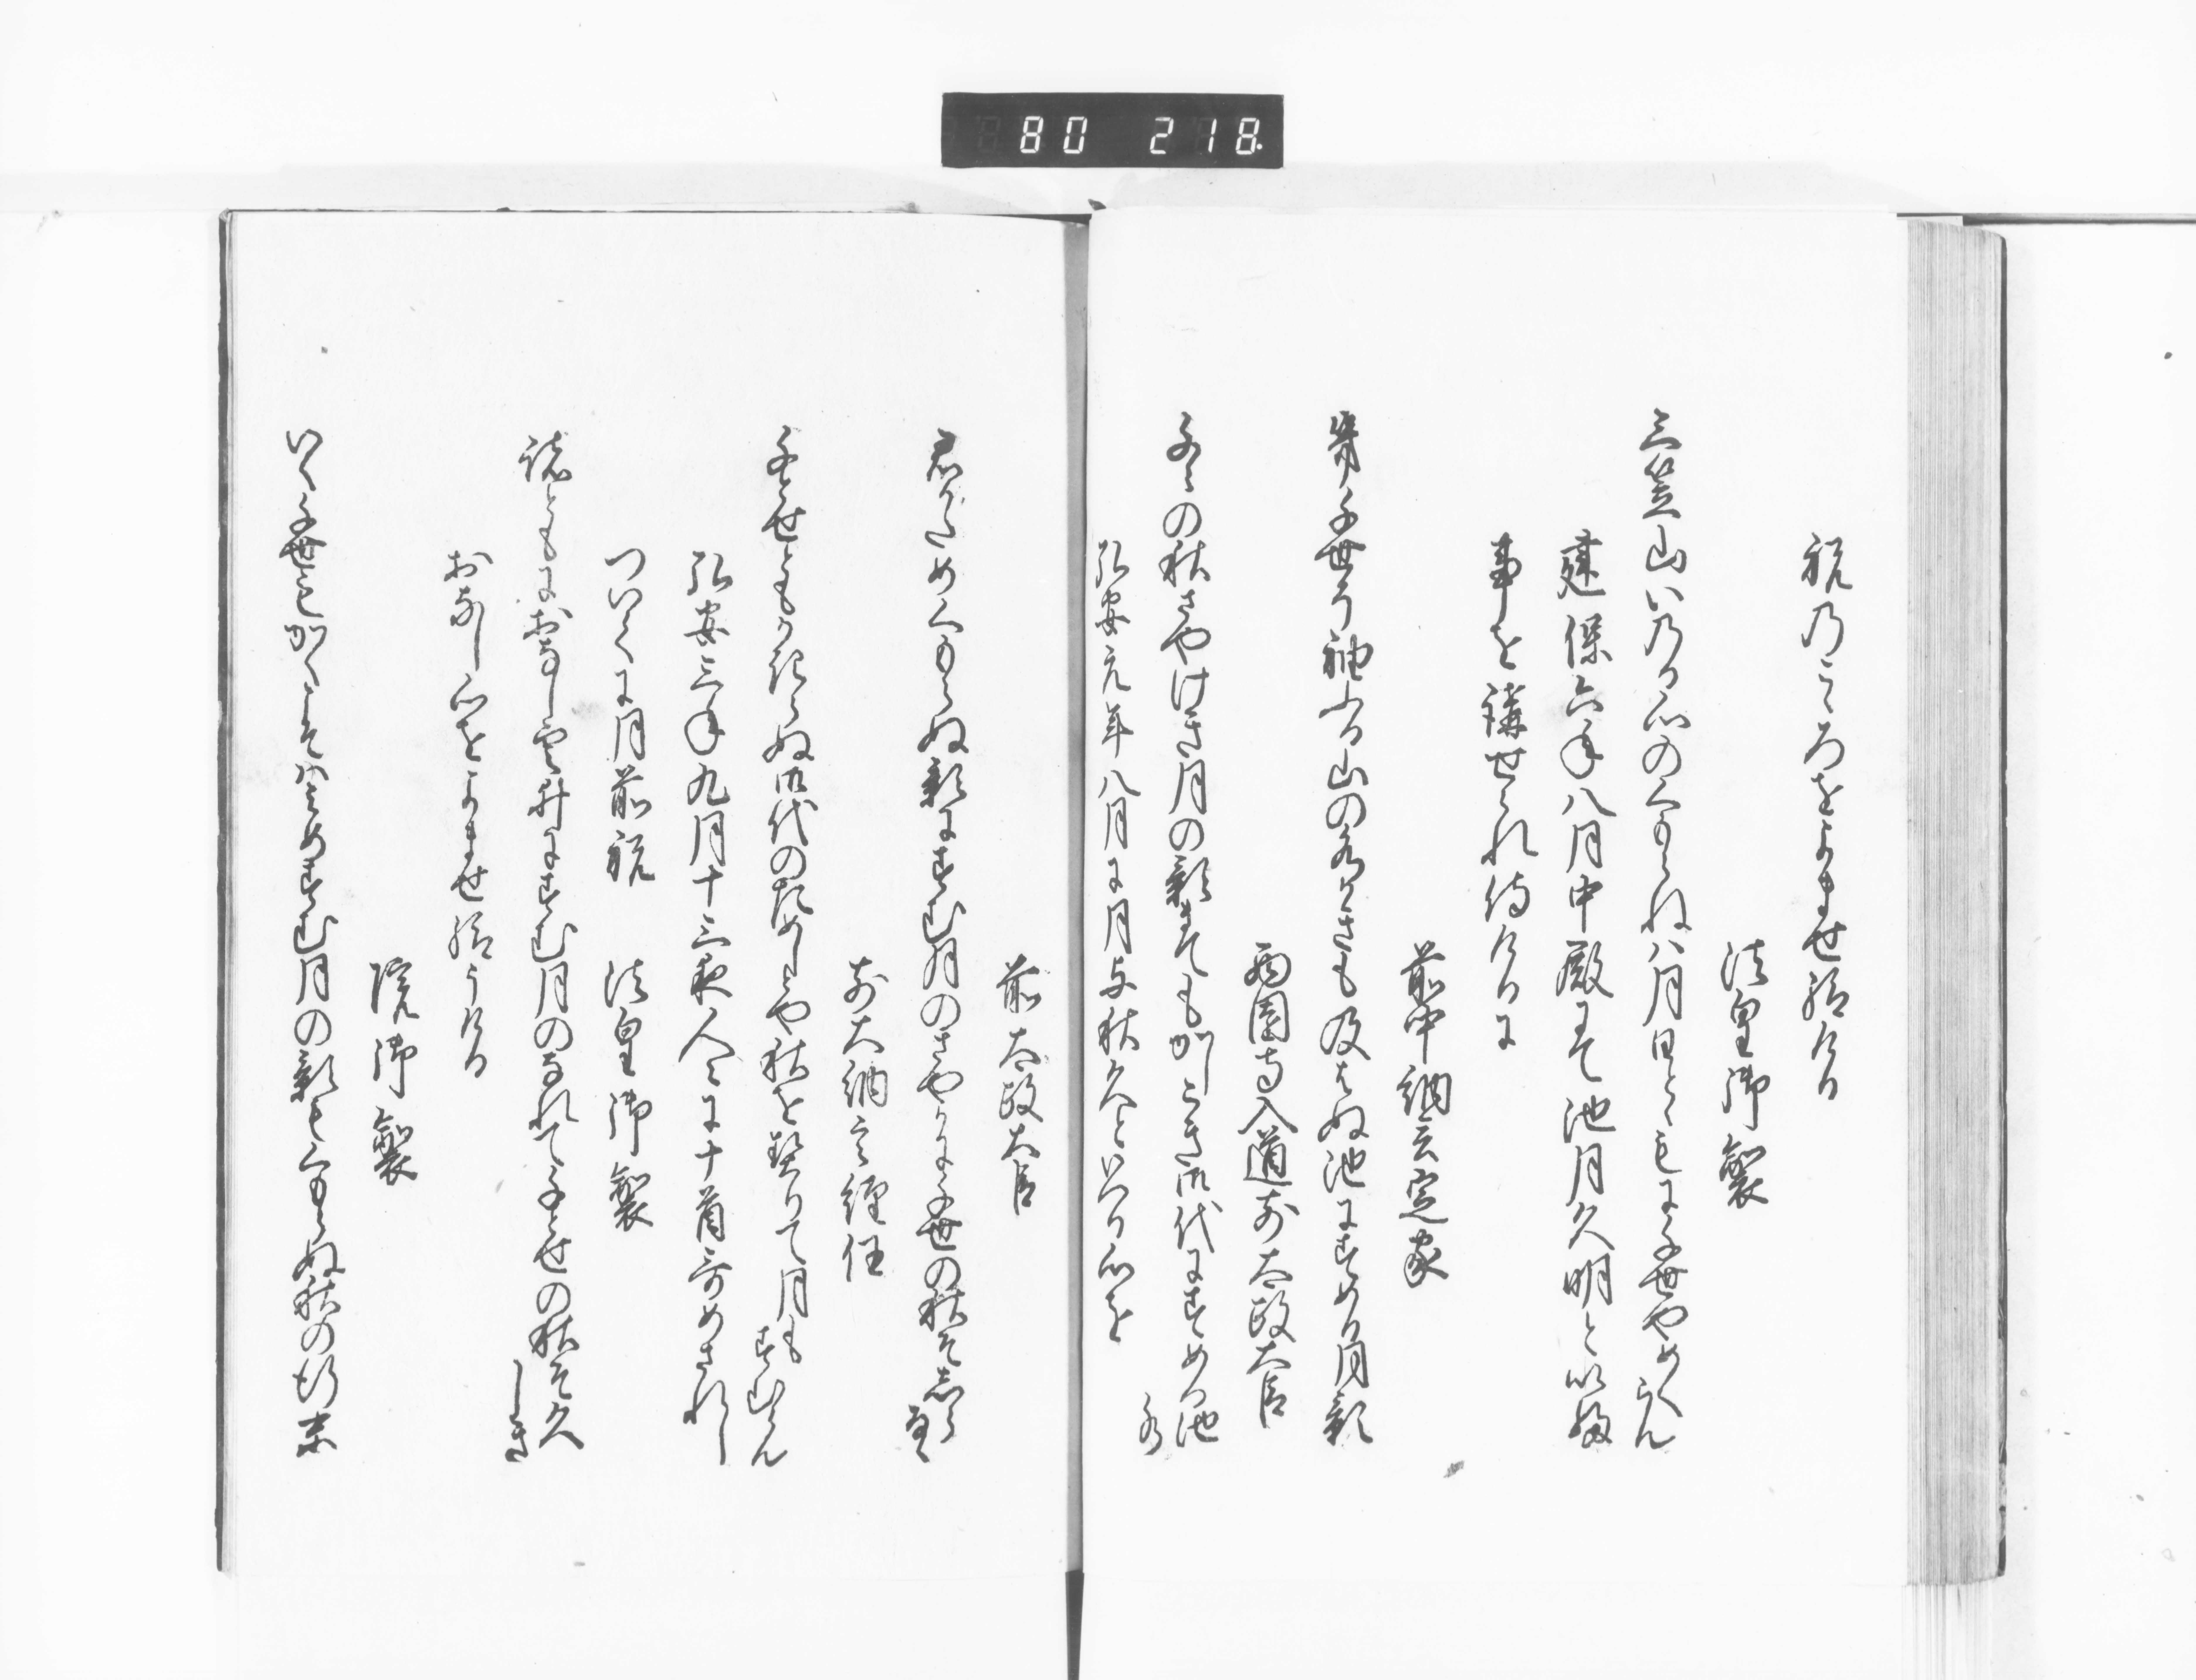 80 218
祝のこゝろをよませ給ける
法皇御製
三笠山いのる心のくもらねは月日とゝもに千世やめくらん
建保六年八月中殿にて池月久明といふ
事を講せられ侍けるに
前中納言定家
幾千世そ袖ふる山の水かきも及はぬ池にすめる月影
西園寺入道前太政大臣
万代の秋さやけき月の影まてもかしこき御代にすめる池水
弘安元年八月に月与秋久といへる心を
前太政大臣
君かためくもらぬ影にすむ月のさやかに千世の秋そしらるゝ
前大納言経任
千とせともかきらぬ御代のためしとや秋を契りて月もすむらん
弘安三年九月十三夜人々に十首哥めされし
ついてに月前祝 法皇御製
諸ともにおなし雲井にすむ月のなれて千とせの秋そ久しき
おなし心をよませ給うける
院御製
いく千世もかくこそはみめすむ月の影もくもらぬ秋の行末